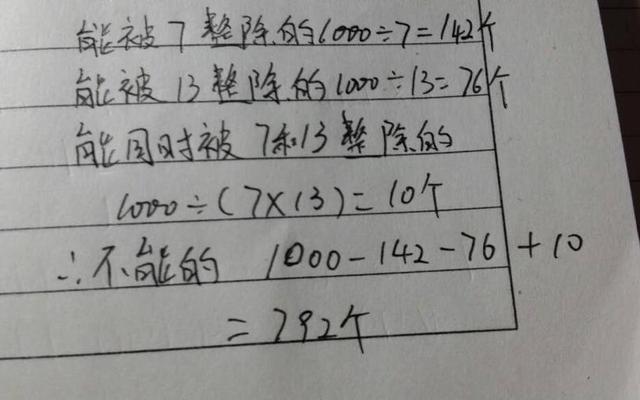 能被7整除的1000÷7=142个
能被13整除的1000÷13=76个
能同时被7和13整除的
1000÷(7×13)=10个
∴不能的 1000-142-76+10
=792个